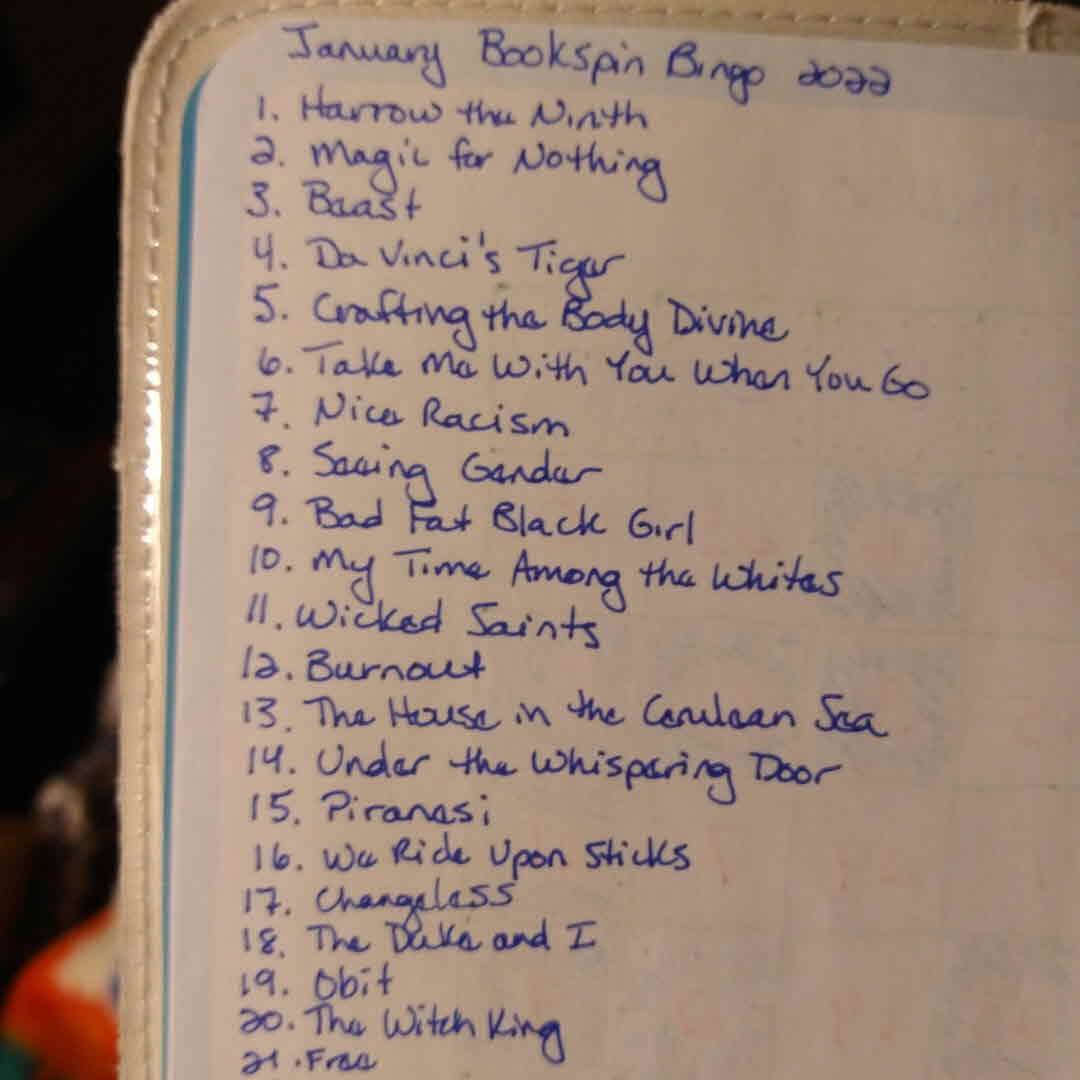 January Bookspin Bingo 2022
1. Harrow the Ninth
2. Magic for Nothing
3. Beast
4. Da Vinci's Tiger
5. Crafting the Body Divine
6. Take Me With You When You Go
7. Nice Racism
8. Seeing Gender
9. Bad Fat Black Girl
10. My Time Among the Whites
11. Wicked Saints
12. Burnout
13. The House in the Cerulean Sea
14. Under the Whispering Door
15. Piranesi
16. We Ride Upon Sticks
17. Changeless
18. The Duke and I
19. Obit
20. The Witch King
21. Free